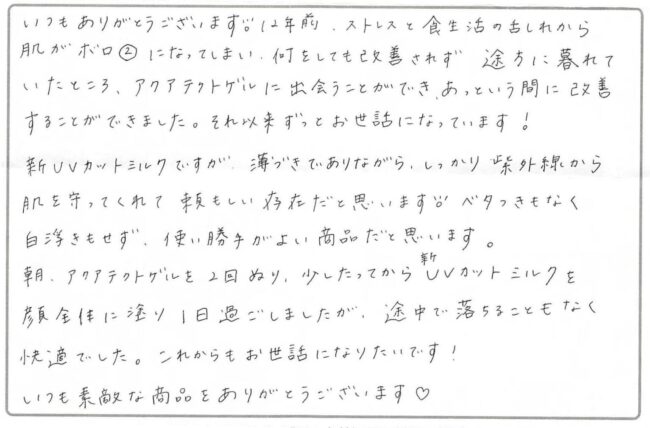 いつもありがとうございます。12年前、ストレスと食生活の古しれから
肌がボロ②になってしまい、何をしても改善されず 途方に暮れて
いたところ、アクアテクトゲルに出会うことができ、あっという間に改善
することができました。それ以来ずっとお世話になっています!
新UVカットミルクですが、薄づきでありながら、しっかり紫外線から
肌を守ってくれて 頼もしい存在だと思います!! ベタつきもなく
白浮きもせず、使い勝手がよい商品だと思います。
朝、アクアテクトゲルを2回ぬり、少したってから新UVカットミルクを
顔全体に塗り1日過ごしましたが、途中で落ちることもなく
快適でした。これからもお世話になりたいです!
いつも素敵な商品をありがとうございます♡